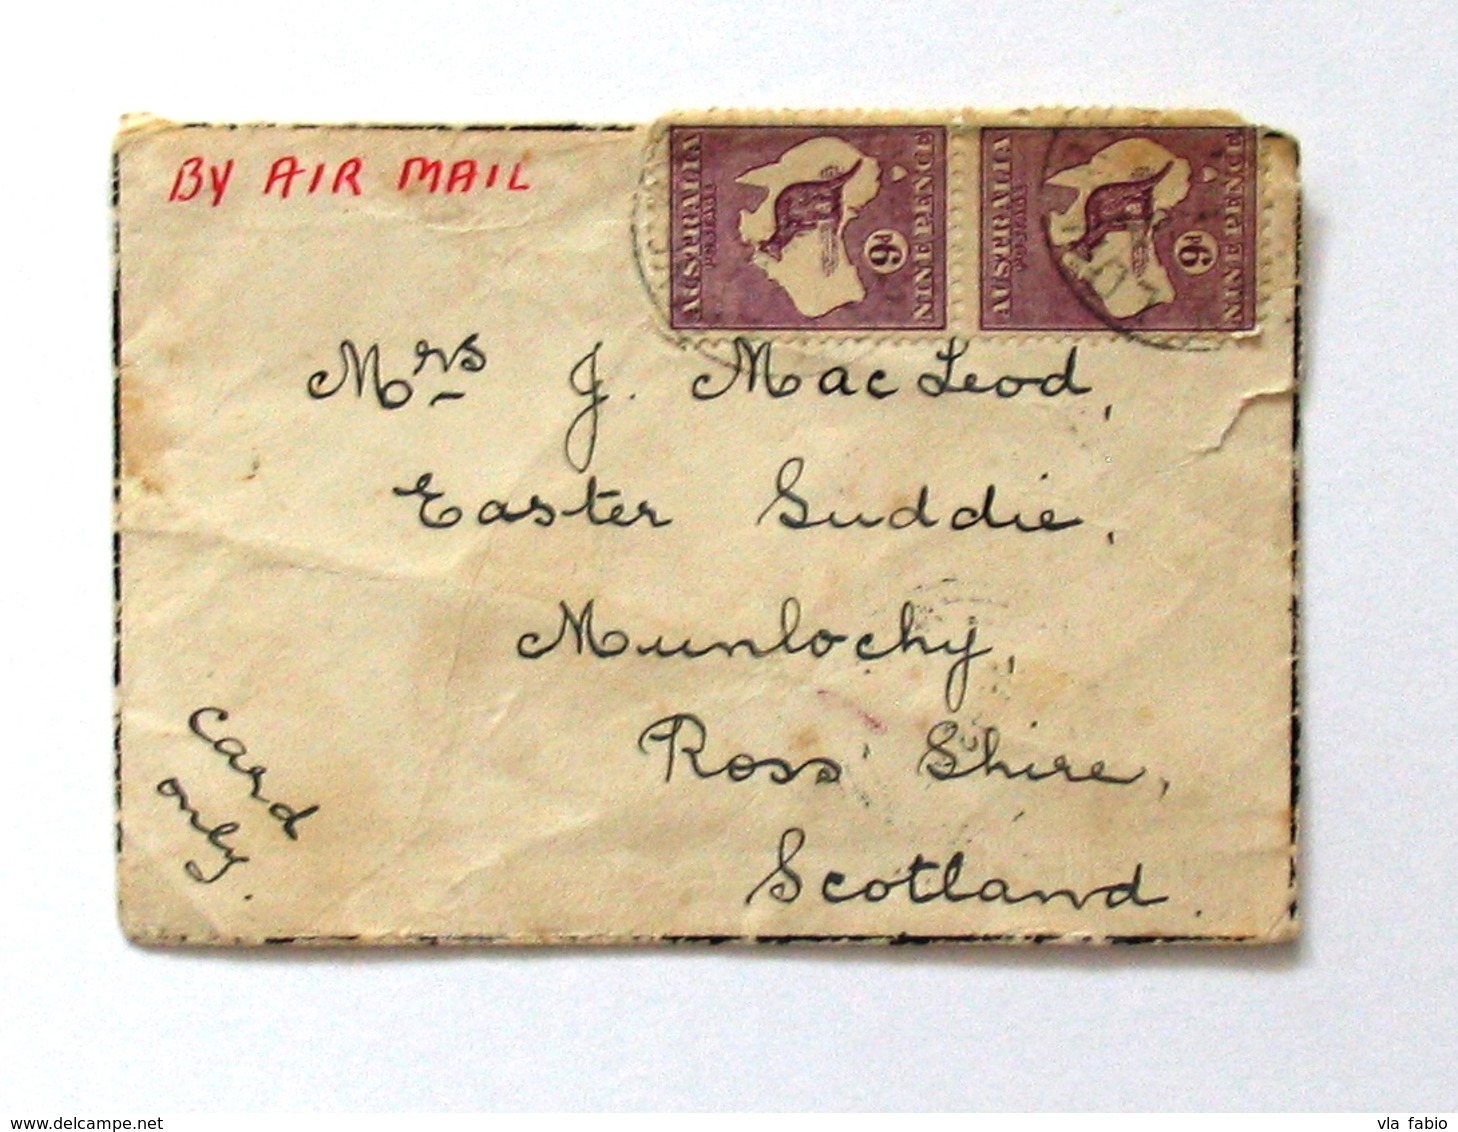 BY AIR MAIL
AUSTRALIA
POSTAGE
9
Pᴰ
NINE PENCE
AUSTRALIA
POSTAGE
9
Pᴰ
NINE PENCE
Mrs J. MacLeod,
Easter Suddie,
Munlochy,
Ross Shire,
Scotland.
Card
only.
via fabio